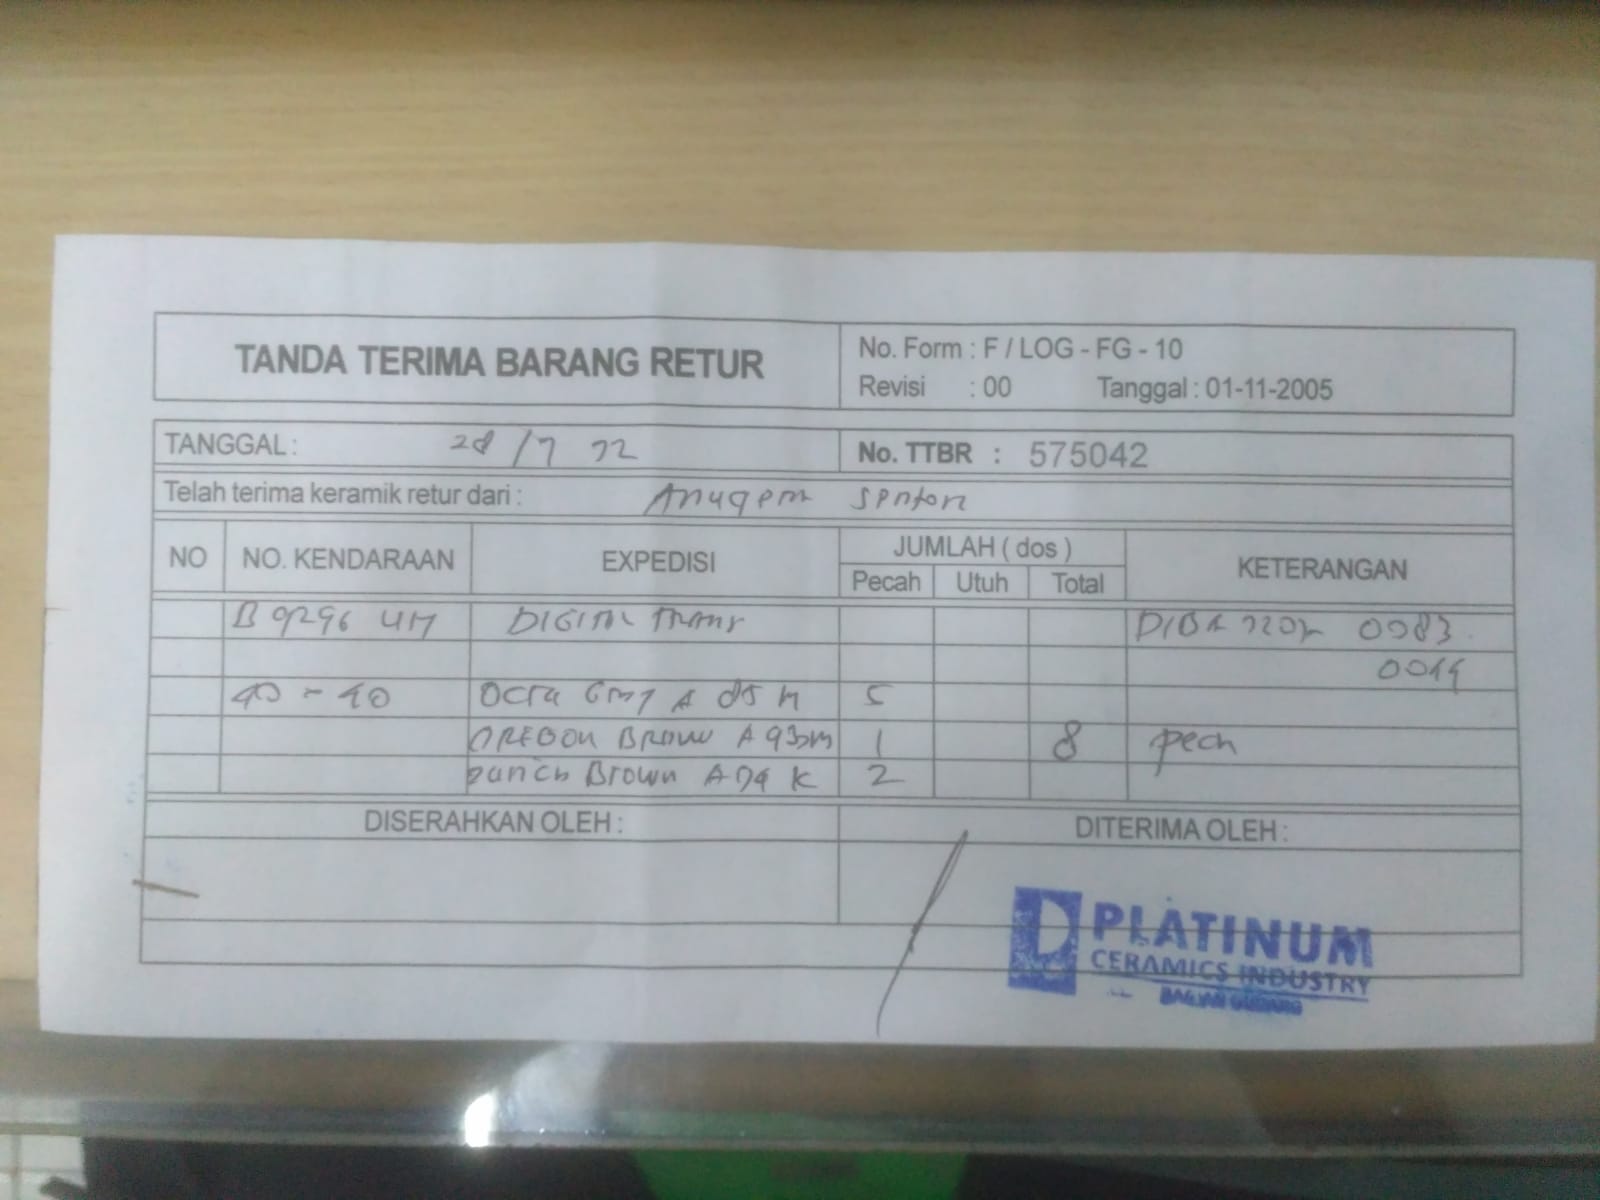 TANDA TERIMA BARANG RETUR
No. Form : F / LOG - FG - 10
Revisi : 00 Tanggal : 01-11-2005
TANGGAL : 28/7 22
No. TTBR : 575042
Telah terima keramik retur dari :
NO NO. KENDARAAN EXPEDISI JUMLAH ( dos ) KETERANGAN
Pecah Utuh Total
B 9296 UM DIGITAL Trans 0083
0014
40 - 40 Octa Grey A 85 M 5
OREGON BROWN A 93 M 1 8 pecah
Brown A 74 K 2
DISERAHKAN OLEH :
DITERIMA OLEH :
PLATINUM
CERAMICS INDUSTRY
BAGIAN GUDANG